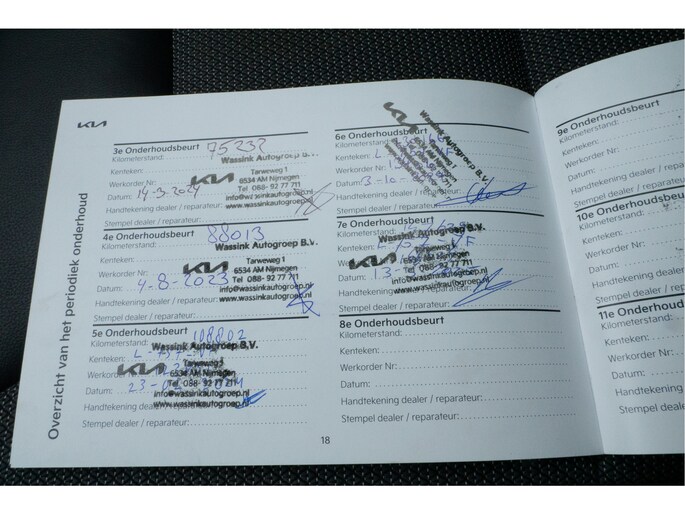 KIA
Overzicht van het periodiek onderhoud
3e Onderhoudsbeurt
Kilometerstand: 75232
Kenteken:
Werkorder Nr:
Datum: 14-3-2024
Handtekening dealer / reparateur:
Stempel dealer / reparateur:
Wassink Autogroep B.V.
KIA
Tarweweg 1
6534 AM Nijmegen
Tel 088- 92 77 711
info@wassinkautogroep.nl
www.wassinkautogroep.nl
4e Onderhoudsbeurt
Kilometerstand: 88013
Kenteken:
Werkorder Nr:
Datum: 4-8-2023
Handtekening dealer / reparateur:
Stempel dealer / reparateur:
Wassink Autogroep B.V.
KIA
Tarweweg 1
6534 AM Nijmegen
Tel 088- 92 77 711
info@wassinkautogroep.nl
www.wassinkautogroep.nl
5e Onderhoudsbeurt
Kilometerstand: 108802
Kenteken:
Werkorder Nr:
Datum:
Handtekening dealer / reparateur:
Stempel dealer / reparateur:
Wassink Autogroep B.V.
KIA
Tarweweg 1
6534 AM Nijmegen
Tel 088- 92 77 711
info@wassinkautogroep.nl
www.wassinkautogroep.nl
6e Onderhoudsbeurt
Kilometerstand:
Kenteken:
Werkorder
Datum: 3-10-
Handtekening dealer / reparateur:
Stempel dealer / reparateur:
KIA
Wassink Autogroep B.V.
Tarweweg 1
7e Onderhoudsbeurt
Kilometerstand:
Kenteken:
Werkorder
Datum:
Handtekening dealer / reparateur:
Stempel dealer / reparateur:
Wassink Autogroep B.V.
KIA
Tarweweg 1
6534 AM Nijmegen
Tel 088- 92 77 711
info@wassinkautogroep.nl
www.wassinkautogroep.nl
8e Onderhoudsbeurt
Kilometerstand:
Kenteken:
Werkorder Nr:
Datum:
Handtekening dealer / reparateur:
Stempel dealer / reparateur:
18
9e Onderhoudsbeurt
Kilometerstand:
Kenteken:
Werkorder Nr:
Datum:
Handtekening dealer
Stempel dealer / repara
10e Onderhoudsbeu
Kilometerstand:
Kenteken:
Werkorder Nr:
Datum:
Handtekening dealer
Stempel dealer / rep
11e Onderhouds
Kilometerstand:
Kenteken:
Werkorder Nr:
Datum:
Handtekening deal
Stempel dealer / re